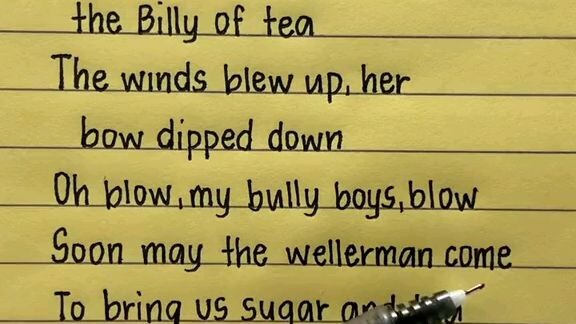 the Billy of tea
The winds blew up, her
bow dipped down
Oh blow, my bully boys, blow
Soon may the wellerman come
To bring us sugar and